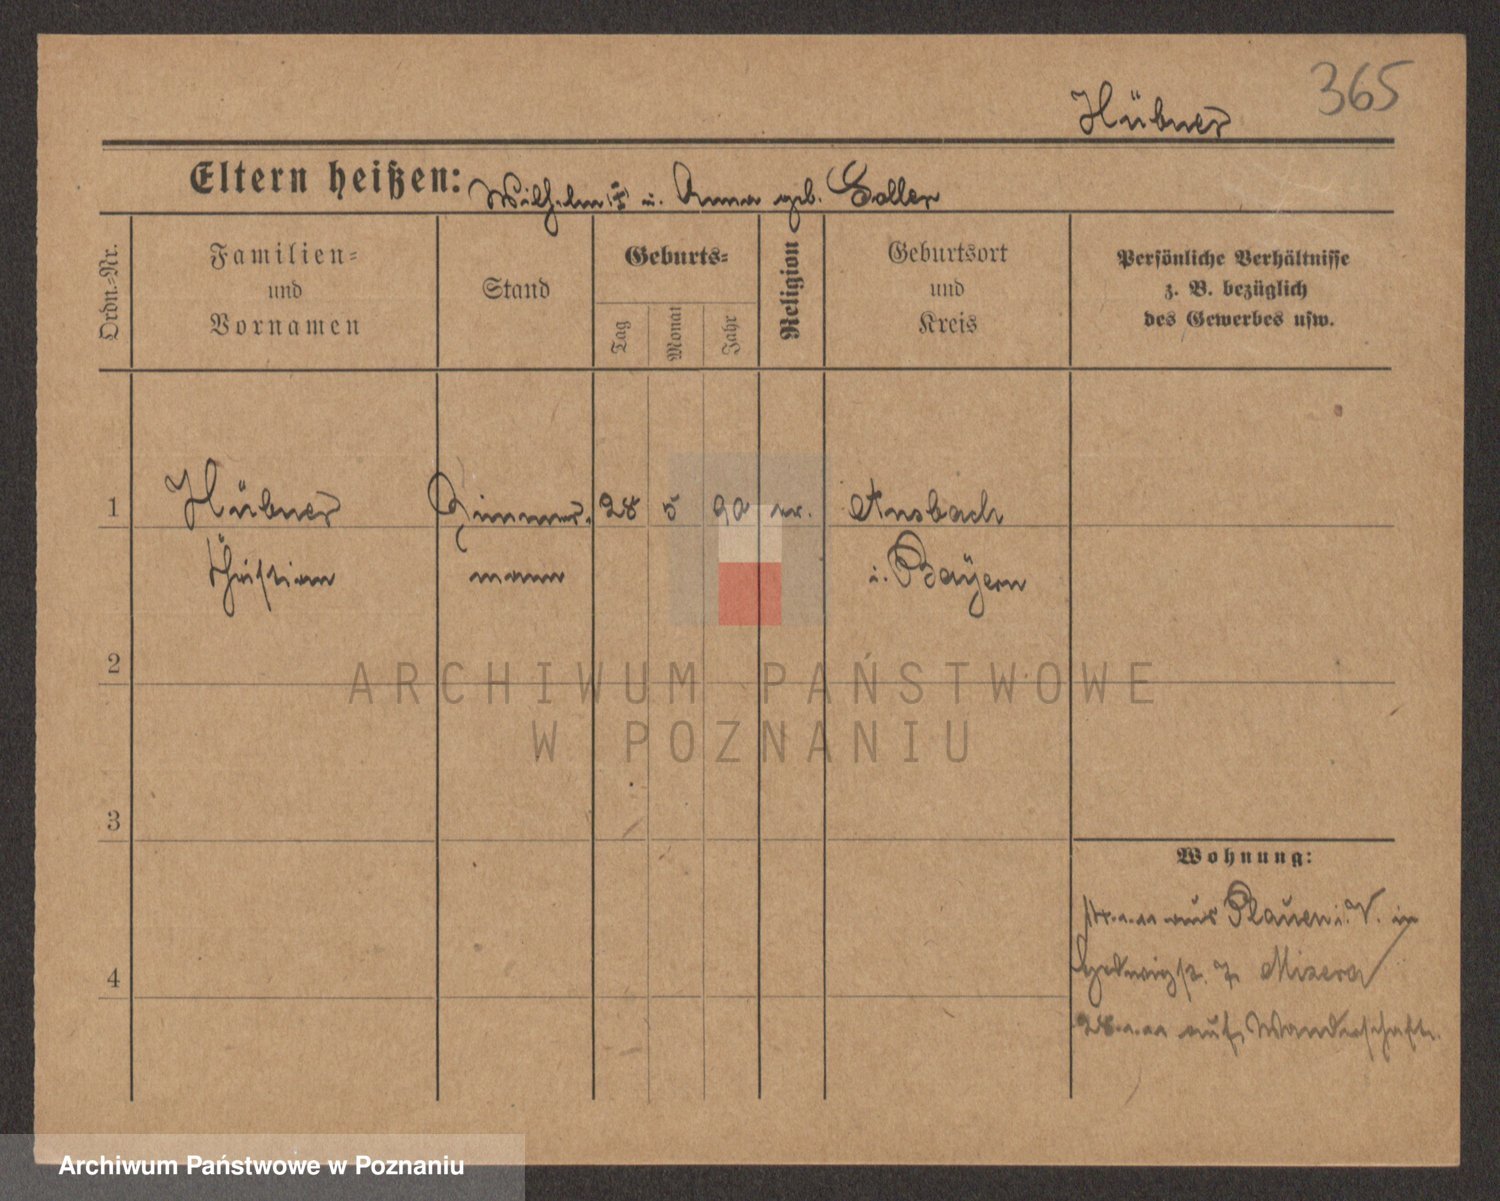 365
Hübner
Eltern heißen: Wilhelm † u. Anna geb. Soller
Ordn.-Nr.
Familien-
und
Vornamen
Stand
Geburts-
Tag
Monat
Jahr
Religion
Geburtsort
und
Kreis
Persönliche Verhältnisse
z. B. bezüglich
des Gewerbes usw.
1 Hübner Zimmer- 28 5 90 Ansbach
Christian mann i. Bayern
2
3
4
Wohnung:
aus Plauen i. V. in
Hedwigst. 7 Misera
auf Wanderschaft.
ARCHIWUM PAŃSTWOWE
W POZNANIU
Archiwum Państwowe w Poznaniu